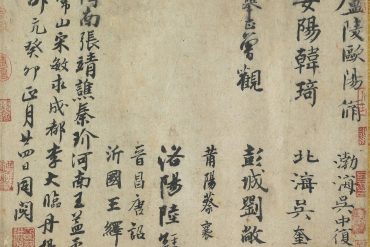 廬陵歐陽脩
渤海吳中復
安陽韓琦
北海吳奎
曾觀
彭城劉敞
莆陽蔡襄
洛陽陸經
晉昌唐詔
沂國王繹
河南張靖譙秦玠河南王益
常山宋敏求成都李大臨丹
元癸卯正月廿四日同閱